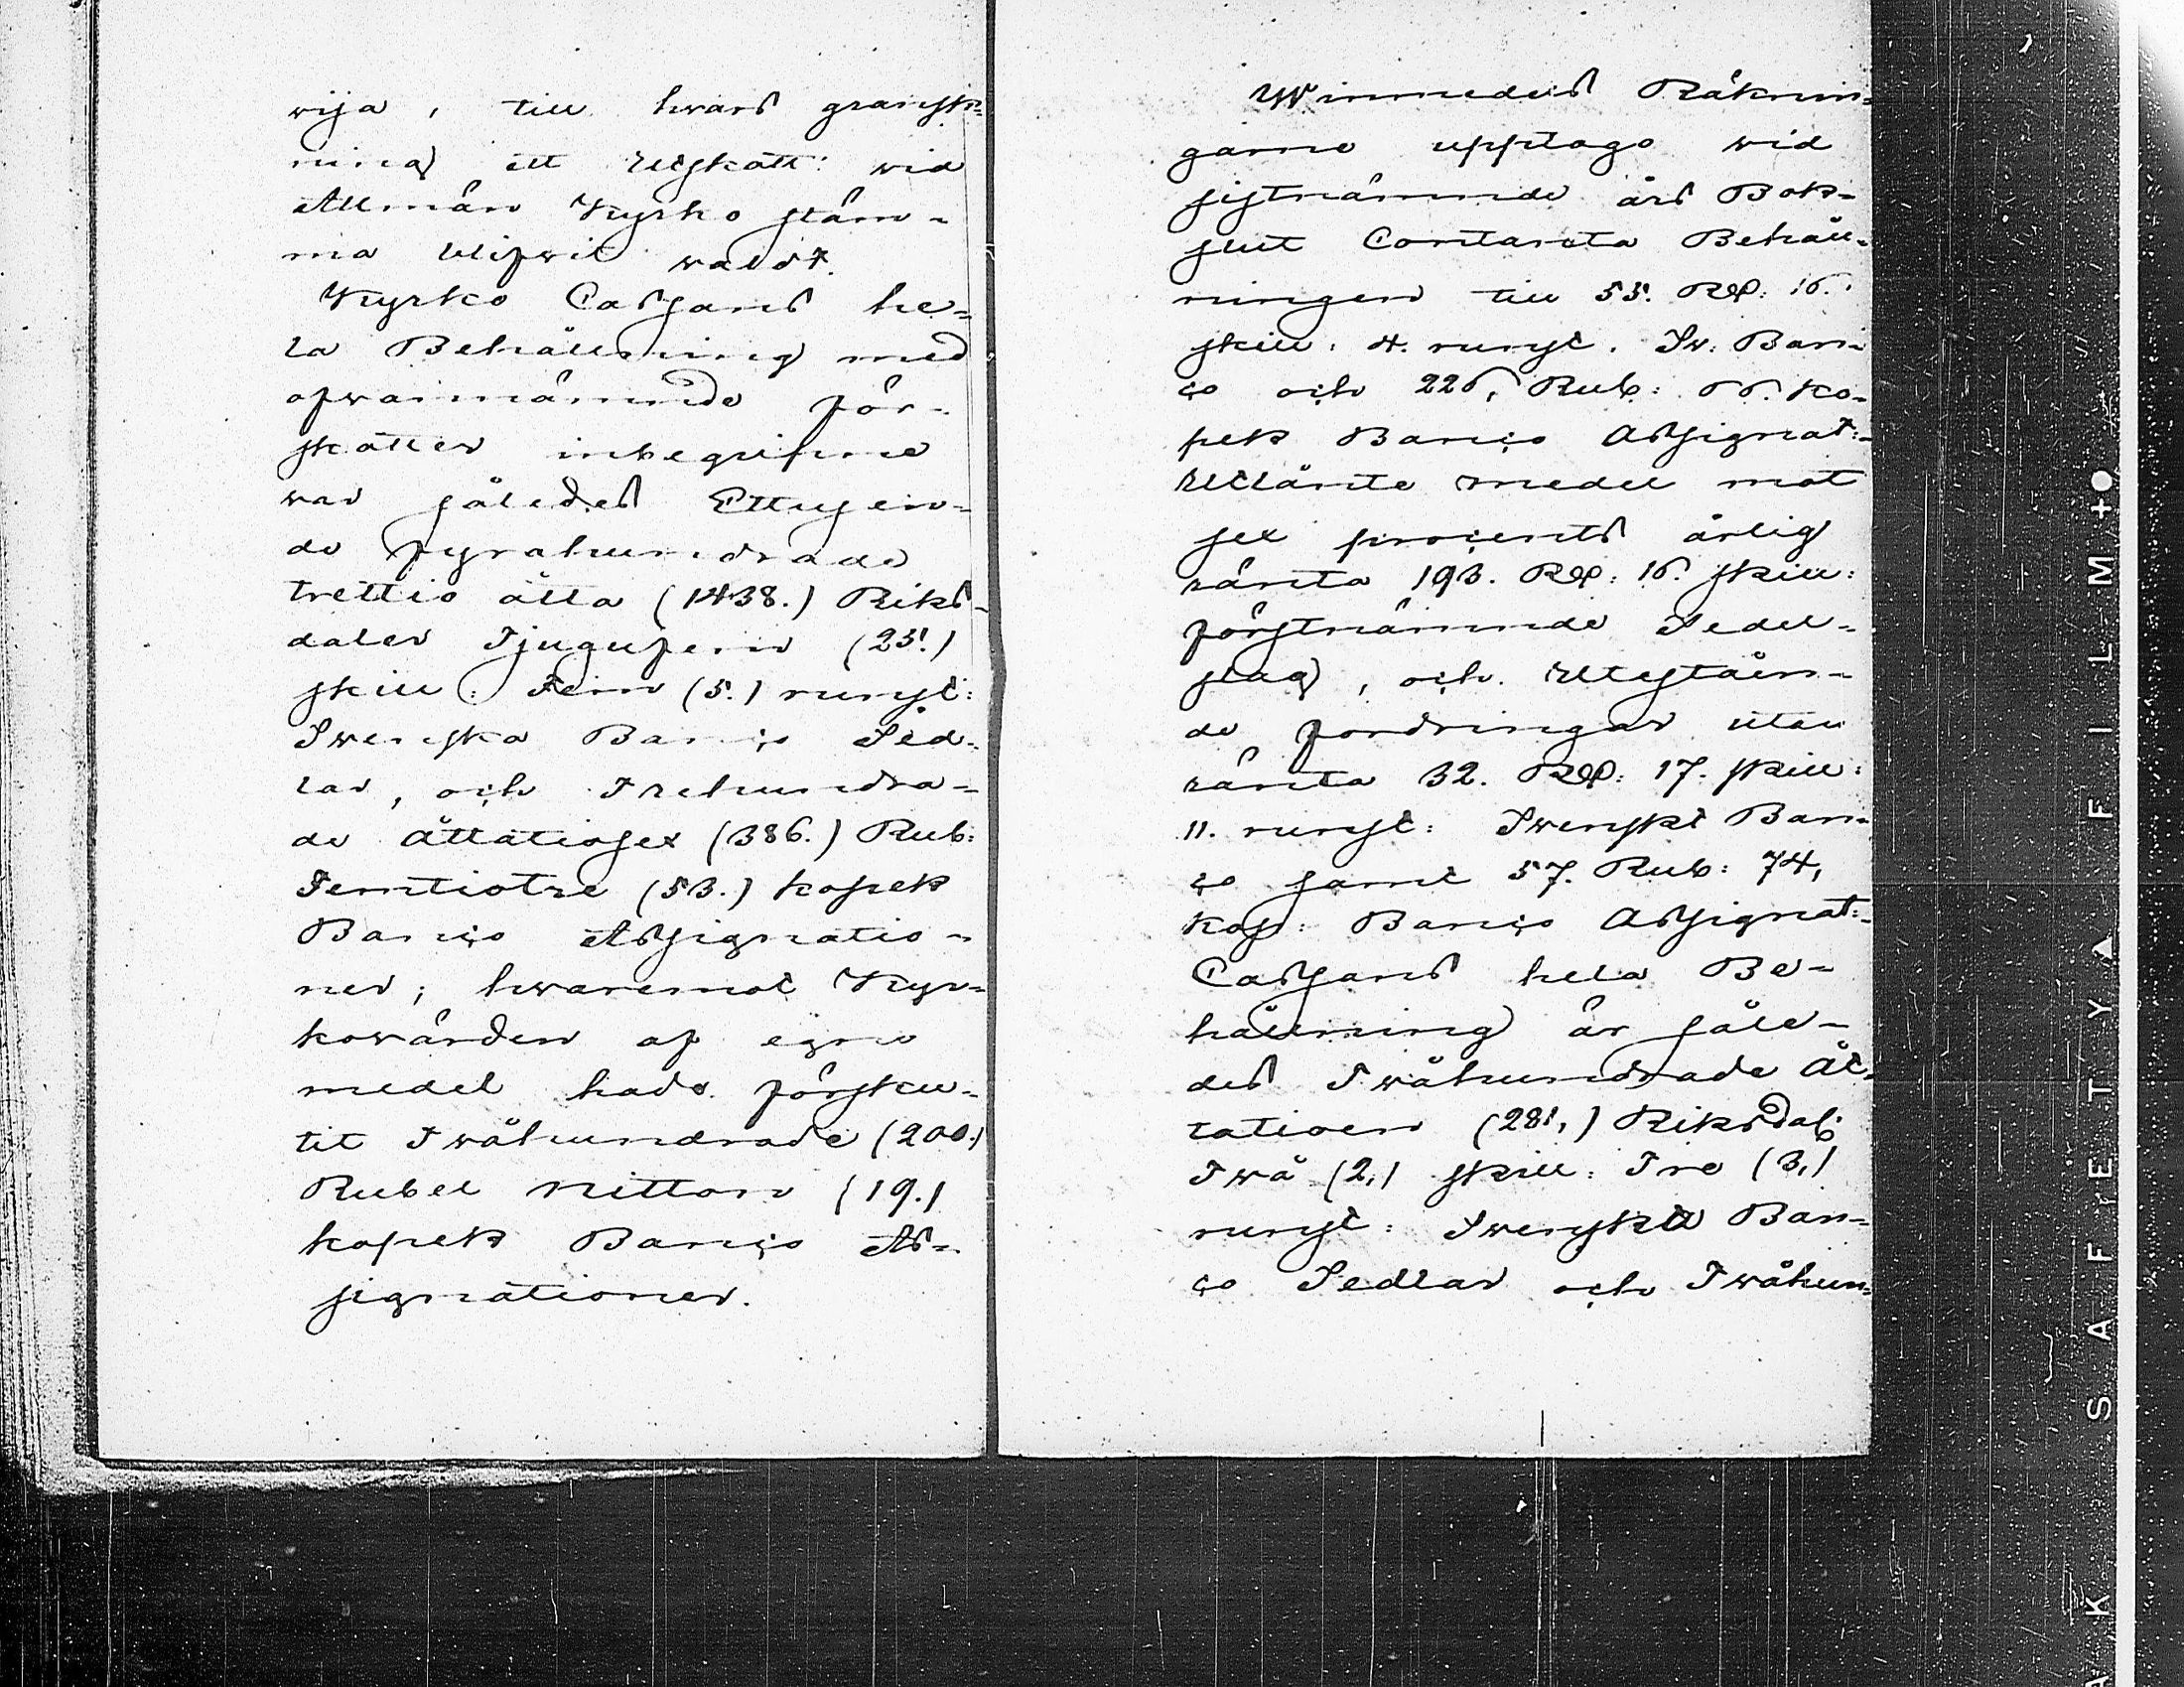 wija, till hwars gransk=
ning ett Utskått: wid
Allmän Kyrko stäm=
ma blifwit waldt.
Kyrko Cassans he=
la Behållning med
ofwannämnde för=
skotter inbegrifne
war således Ettusen=
de fyrahundrade
trettio åtta (1438.) Riks=
daler Tjugufem (25.)
skill: Fem (5.) runst:
Swenska Banco Sed=
lar, och Trehundra=
de Åttatiosex (386.) Rub:
Femtiotre (53.) kopek
Banco Assignatio=
ner; hwaremot Kyr=
kowärden af egne
medel hade försku=
tit Twåhundrade (200.)
Rubel Nitton (19.)
kopek Banco As=
signationer.
Winmedels Räknin=
garne upptogo wid
sistnämnde års Bok=
slut Contanta Behåll=
ningen till 55. Rd: 16.
skill: 4. runst. Sw: Ban=
co och 226, Rub: 66. Ko=
pek Banco Assignat:
Utlånte medel mot
sex procents årlig
ränta 193. Rd: 16. skill:
förstnämnde Sedel=
slag, och Utestäen=
de fordringar utan
ränta 32. Rd: 17. skill:
11. runst: Swenskt Ban=
co samt 57. Rub: 74,
Kop: Banco Assignat:
Cassans hela Be=
hållning är såle=
des Twåhundrade Åt=
tatioen (281,) Riksdal:
Twå (2,) skill: Tre (3,)
runst: Swenska Ban=
co Sedlar och Twåhun=
A K S A F E T Y ▲ F I L M + ●